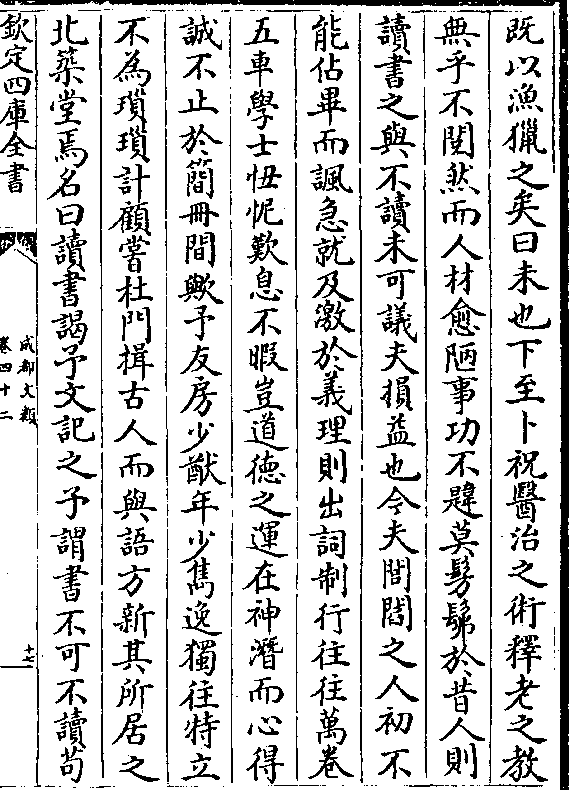 既以漁獵之矣曰未也下至卜祝醫治之術釋老之教
無乎不閱然而人材愈陋事功不韙莫髣髴於昔人則
讀書之與不讀未可議夫損益也今夫閭閻之人初不
能佔畢而諷急就及激於義理則出詞制行往往萬卷
五車學士忸怩歎息不暇豈道德之運在神潛而心得
誠不止於簡冊間歟予友房少猷年少雋逸獨往特立
不為瑣瑣計顧嘗杜門揖古人而與語方新其所居之
北築堂焉名曰讀書謁予文記之予謂書不可不讀苟
欽定四庫全書
成都文類
卷四十二
十七